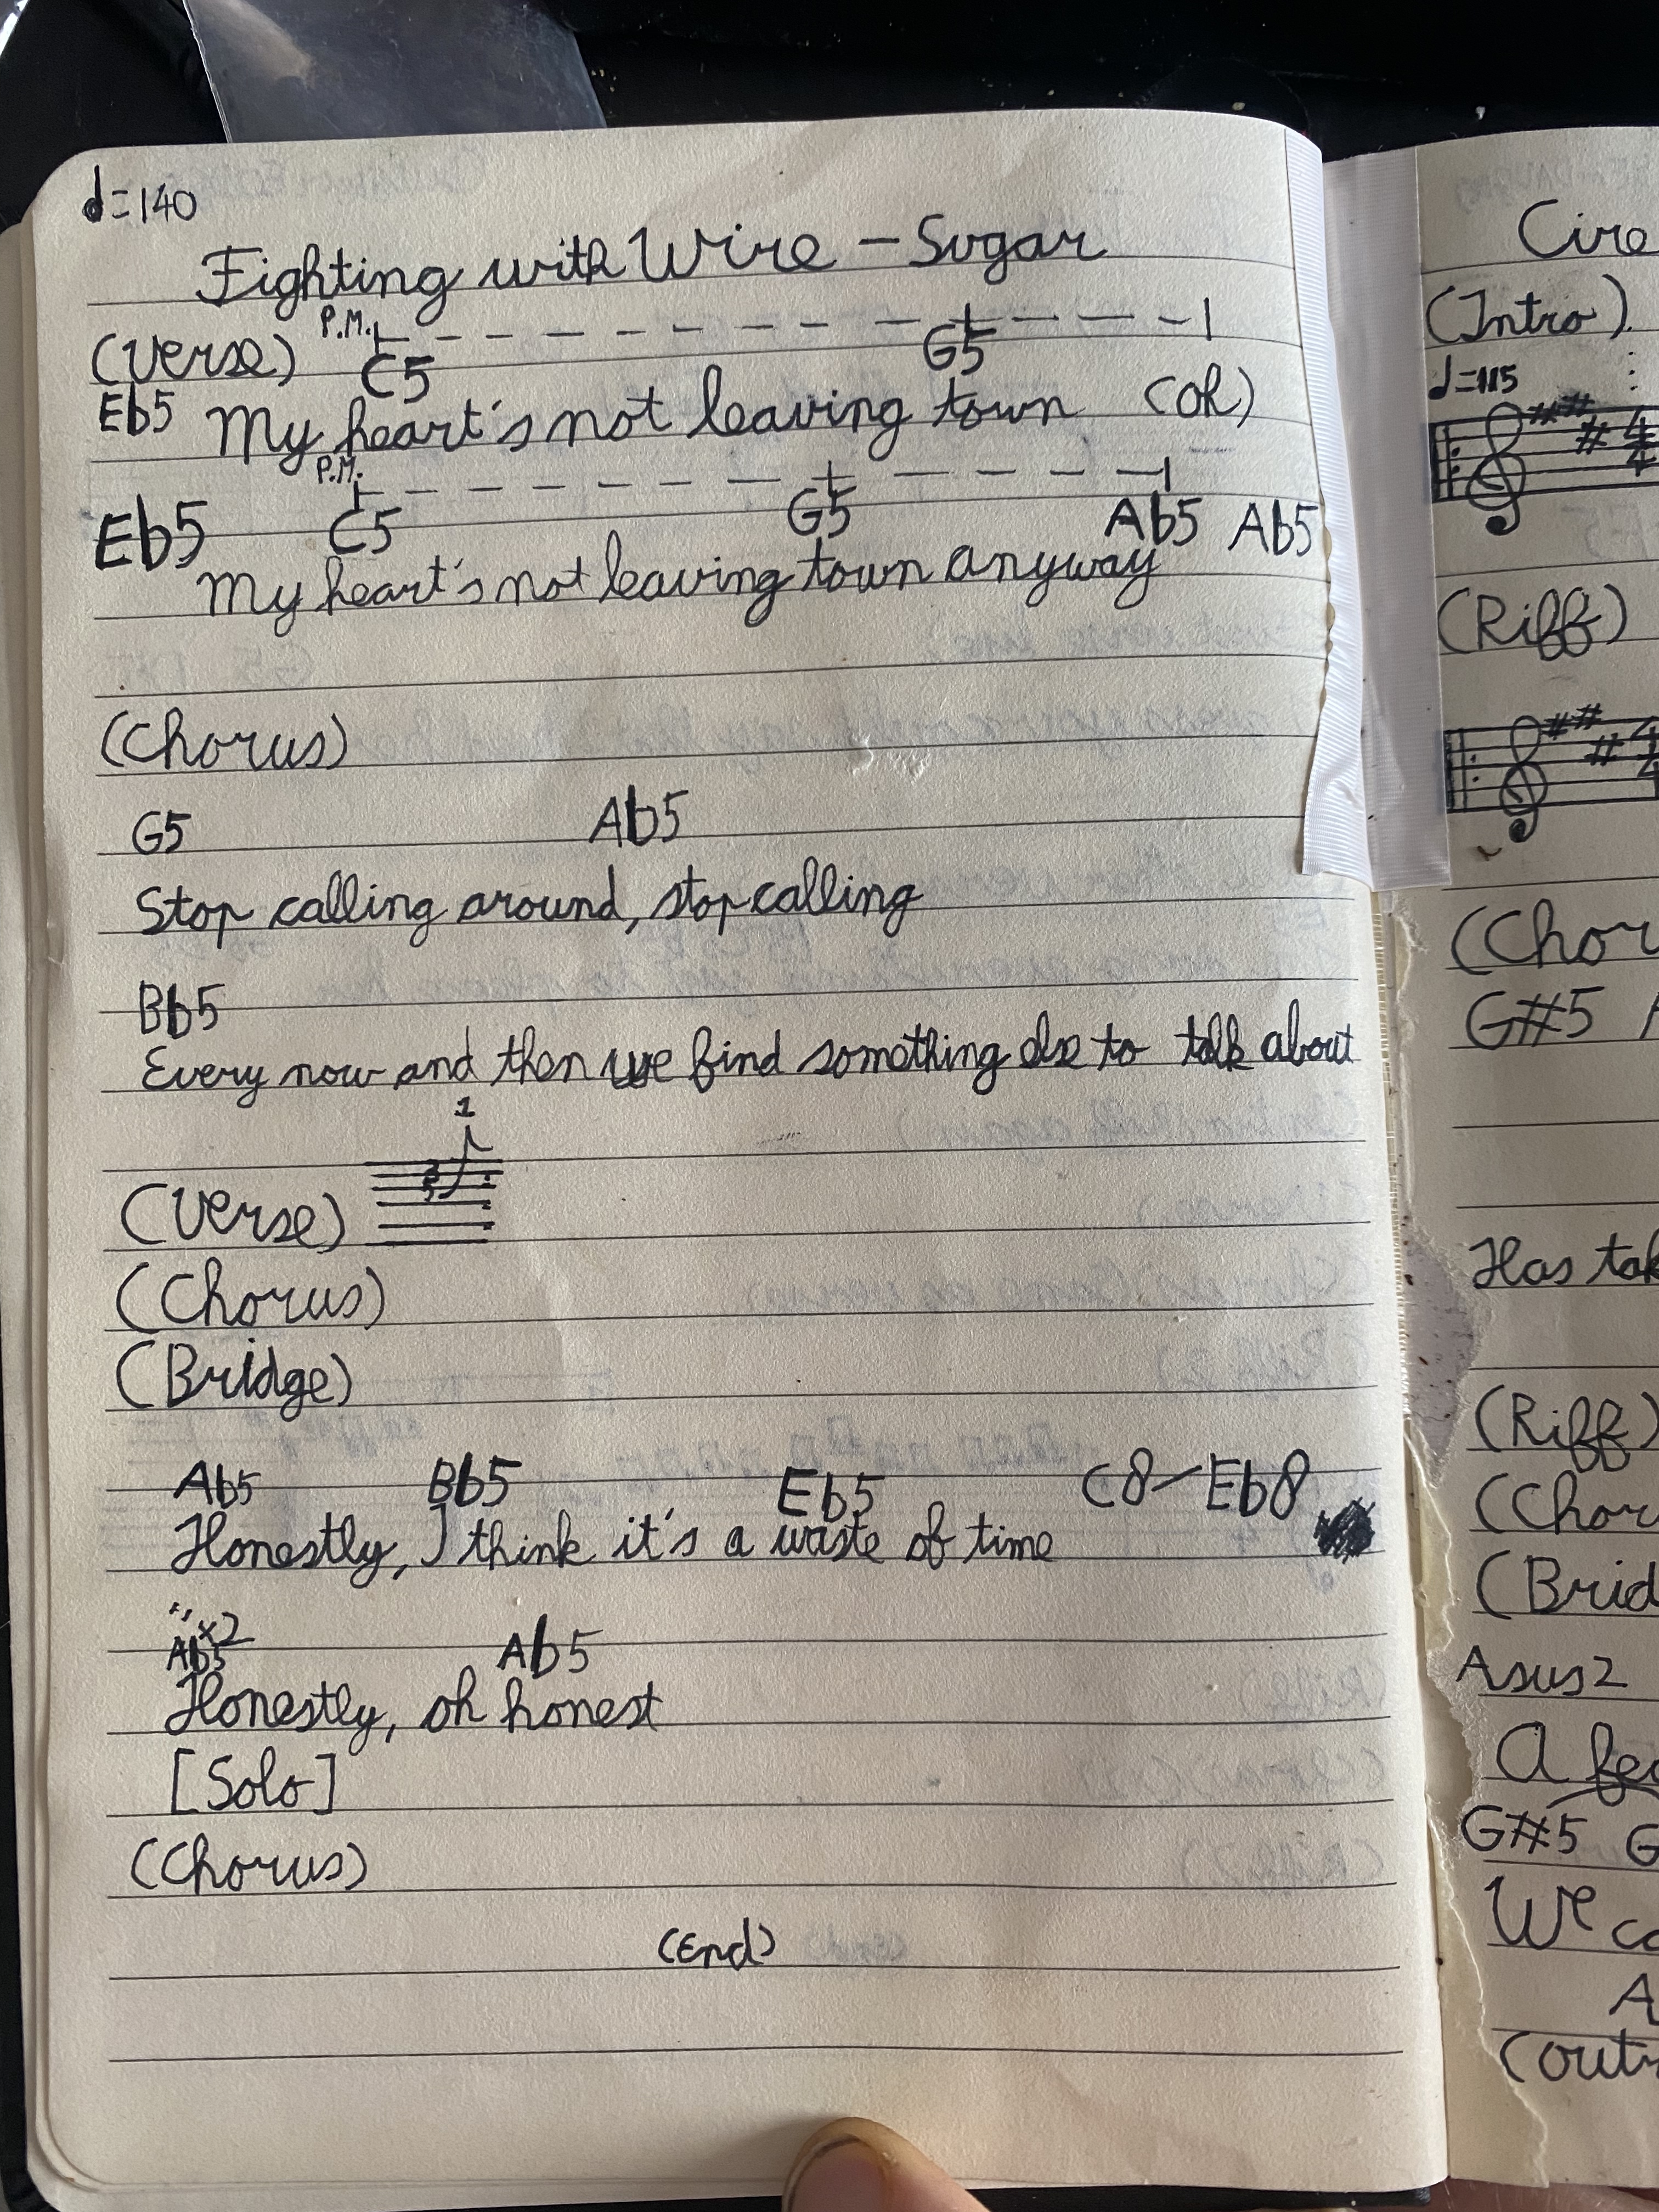 ♩=140
Fighting with Wire – Sugar
(Verse) P.M. C5 G5
Eb5 My heart's not leaving town (oh)
P.M.
Eb5 C5 G5 Ab5 Ab5
My heart's not leaving town anyway
(Chorus)
G5 Ab5
Stop calling around, stop calling
Bb5
Every now and then we find something else to talk about
1
(Verse)
(Chorus)
(Bridge)
Ab5 Bb5 Eb5 C8–Eb8
Honestly, I think it's a waste of time
"x2
Ab5 Ab5
Honestly, oh honest
[Solo]
(Chorus)
(End)
Cire
(Intro)
♩=115
4
4
(Riff)
4
4
(Chor
G#5
Has tak
(Riff)
(Chor
(Brid
Asus2
A fe
G#5 G
We co
A
(outr